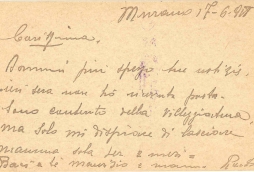 Murano 17-6-
Carissima,
Dammi più spesso tue notizie,
ieri sera non ho ricevuto posta.
Sono contento della villeggiatura,
ma solo mi dispiace di lasciare
mamma sola per e
Baci a te Maurizio e